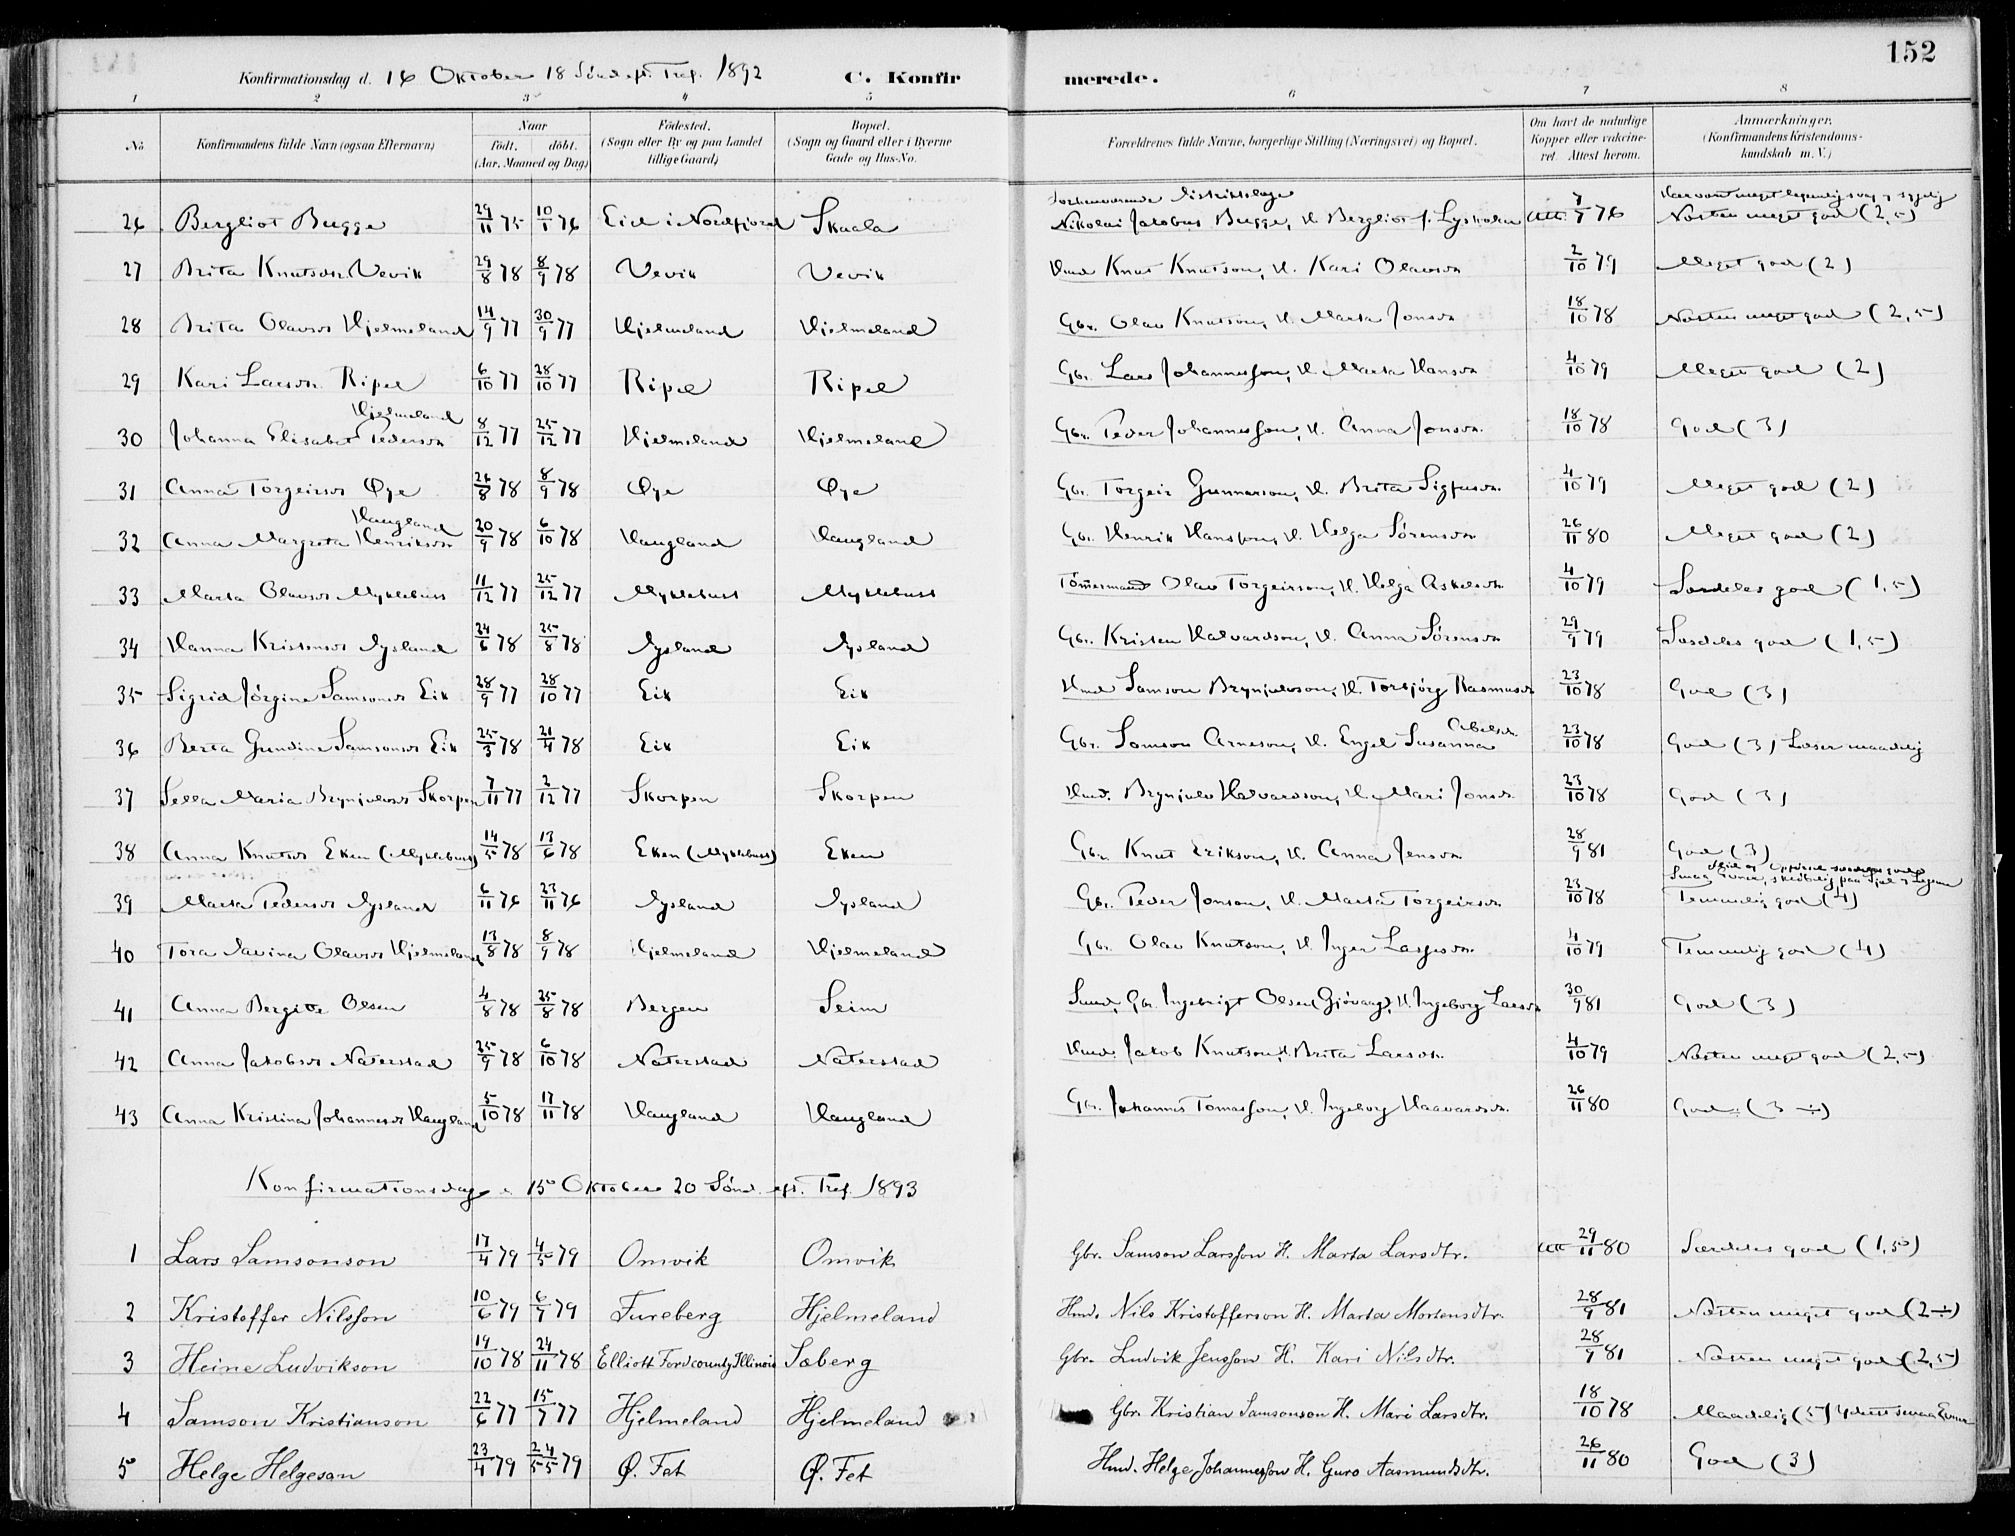 152
Konfirmationsdag d. 16 Oktober 18 Sønd. eft. Tref. 1892 C. Konfirmerede.
1 2 3 4 5 6 7 8
No Konfirmandens fulde Navn (ogsaa Efternavn) Naar født. døbt. (Aar, Maaned og Dag) Fødested. (Sogn eller By og paa Landet tillige Gaard) Bopæl. (Sogn og Gaard eller i Byerne Gade og Hus-No. Forældrenes fulde Navne, borgerlige Stilling (Næringsvei) og Bopæl. Om havt de naturlige Kopper eller vakcineret. Attest herom. Anmærkninger. (Konfirmandens Kristendomskundskab m. V.)
26 Bergliot Bugge 29/11 75 10/1 76 Eid i Nordfjord Skaala Forhenværende Distriktslæge Nikolai Jakobus Bugge, H. Bergliot f. Lysholm Att. 7/7 76 Næsten meget god (2,5)
27 Brita Knutsdr. Vevik 29/8 78 8/9 78 Vevik Vevik Hmd Knut Knutson, H. Kari Olavsdr 2/10 79 Meget god (2)
28 Brita Olavsdr Hjelmeland 14/9 77 30/9 77 Hjelmeland Hjelmeland Gbr. Olav Knutson, H. Marta Jonsdr 18/10 78 Næsten meget god (2,5)
29 Kari Larsdr. Ripel 6/10 77 28/10 77 Ripel Ripel Gbr. Lars Johannesson, H. Marta Hansdr 4/10 79 Meget god (2)
30 Johanna Elisabet Pedersdr Hjelmeland 8/12 77 25/12 77 Hjelmeland Hjelmeland Gbr. Peder Johannesson, H. Anna Jonsdr. 18/10 78 God (3)
31 Anna Torgeirsdr Øye 26/8 78 8/9 78 Øye Øye Gbr. Torgeir Gunnarson, H. Brita Sigfusdr. 4/10 79 Meget god (2)
32 Anna Margreta Henriksdr Haugland 20/9 78 6/10 78 Haugland Haugland Gbr. Henrik Hansson, H. Helga Sørensdr 26/11 80 Meget god (2)
33 Marta Olavsdr Myklebust 11/12 77 25/12 77 Myklebust Myklebust Tømmermand Olav Torgeirson, H. Helga Askelsdr 4/10 79 Særdeles god (1,5)
34 Hanna Kristensdr Gysland 24/6 78 25/8 78 Gysland Gysland Gbr. Kristen Halvardson, H. Anna Sørensdr 29/9 79 Særdeles god (1,5)
35 Sigrid Jørgine Samsonsdr Eik 28/9 77 28/10 77 Eik Eik Hmd Samson Brynjulvson, H. Torbjørg Rasmusdr 23/10 78 God (3)
36 Berta Gundine Samsonsdr Eik 25/3 78 21/4 78 Eik Eik Gbr. Samson Arneson, H. Engel Susanna Abelsdr. 23/10 78 God (3) Læser maadelig
37 Sella Maria Brynjulvsdr Skorpen 7/11 77 2/12 77 Skorpen Skorpen Hmd. Brynjulv Halvardson, H. Mari Jonsdr 23/10 78 God (3)
38 Anna Knutsdr Eken (Myklebust) 14/5 78 13/6 78 Eken (Myklebust) Eken Gbr. Knut Erikson, H. Anna Jensdr. 28/9 81 God (3)
39 Marta Pedersdr Gysland 6/11 76 23/11 76 Gysland Gysland Gbr. Peder Jonson, H. Marta Torgeirsdr 23/10 78 Temmelig god (4)
40 Tora Davina Olavsdr Hjelmeland 13/8 78 8/9 78 Hjelmeland Hjelmeland Gbr. Olav Knutson, H. Inger Lassesdr. 4/10 79 Temmelig god (4)
41 Anna Bergitte Olsen 4/8 78 25/8 78 Bergen Seim Smed, Gbr. Ingebrigt Olsen (Gjøvaag), H. Ingeborg Larsdr 30/9 81 God (3)
42 Anna Jakobsdr Naterstad 25/9 78 6/10 78 Naterstad Naterstad Hmd. Jakob Knutson, H. Brita Larsdr. 4/10 79 Næsten meget god (2,5)
43 Anna Kristina Johannesdr Haugland 5/10 78 17/11 78 Haugland Haugland Gbr. Johannes Tomasson, H. Ingeborg Haavardsdr. 26/11 80 God (3 ÷)
Konfirmationsdag 15 Oktober 20 Sønd. eft. Tref. 1893
1 Lars Samsonson 17/4 79 4/5 79 Omvik Omvik Gbr. Samson Larsson H. Marta Larsdtr. Att 29/11 80 Særdeles god (1,5)
2 Kristoffer Nilsson 10/6 79 6/7 79 Fureberg Hjelmeland Hmd. Nils Kristofferson H. Marta Mortensdtr. 28/9 81 Næsten meget god (2 ÷)
3 Heine Ludvikson 19/10 78 24/11 78 Elliott Ford county Illinois Sæberg Gbr. Ludvik Jensson H. Kari Nilsdtr. 28/9 81 Næsten meget god (2,5)
4 Samson Kristianson 22/6 77 15/7 77 Hjelmeland Hjelmeland Gbr. Kristian Samsonson H. Mari Larsdtr. 18/10 78 Maadelig (5) Yderst smaa Evner
5 Helge Helgeson 23/4 79 24/5 79 Ø. Fet Ø. Fet Hmd. Helge Johannesson H. Guro Aasmundsdtr. 26/11 80 God (3)